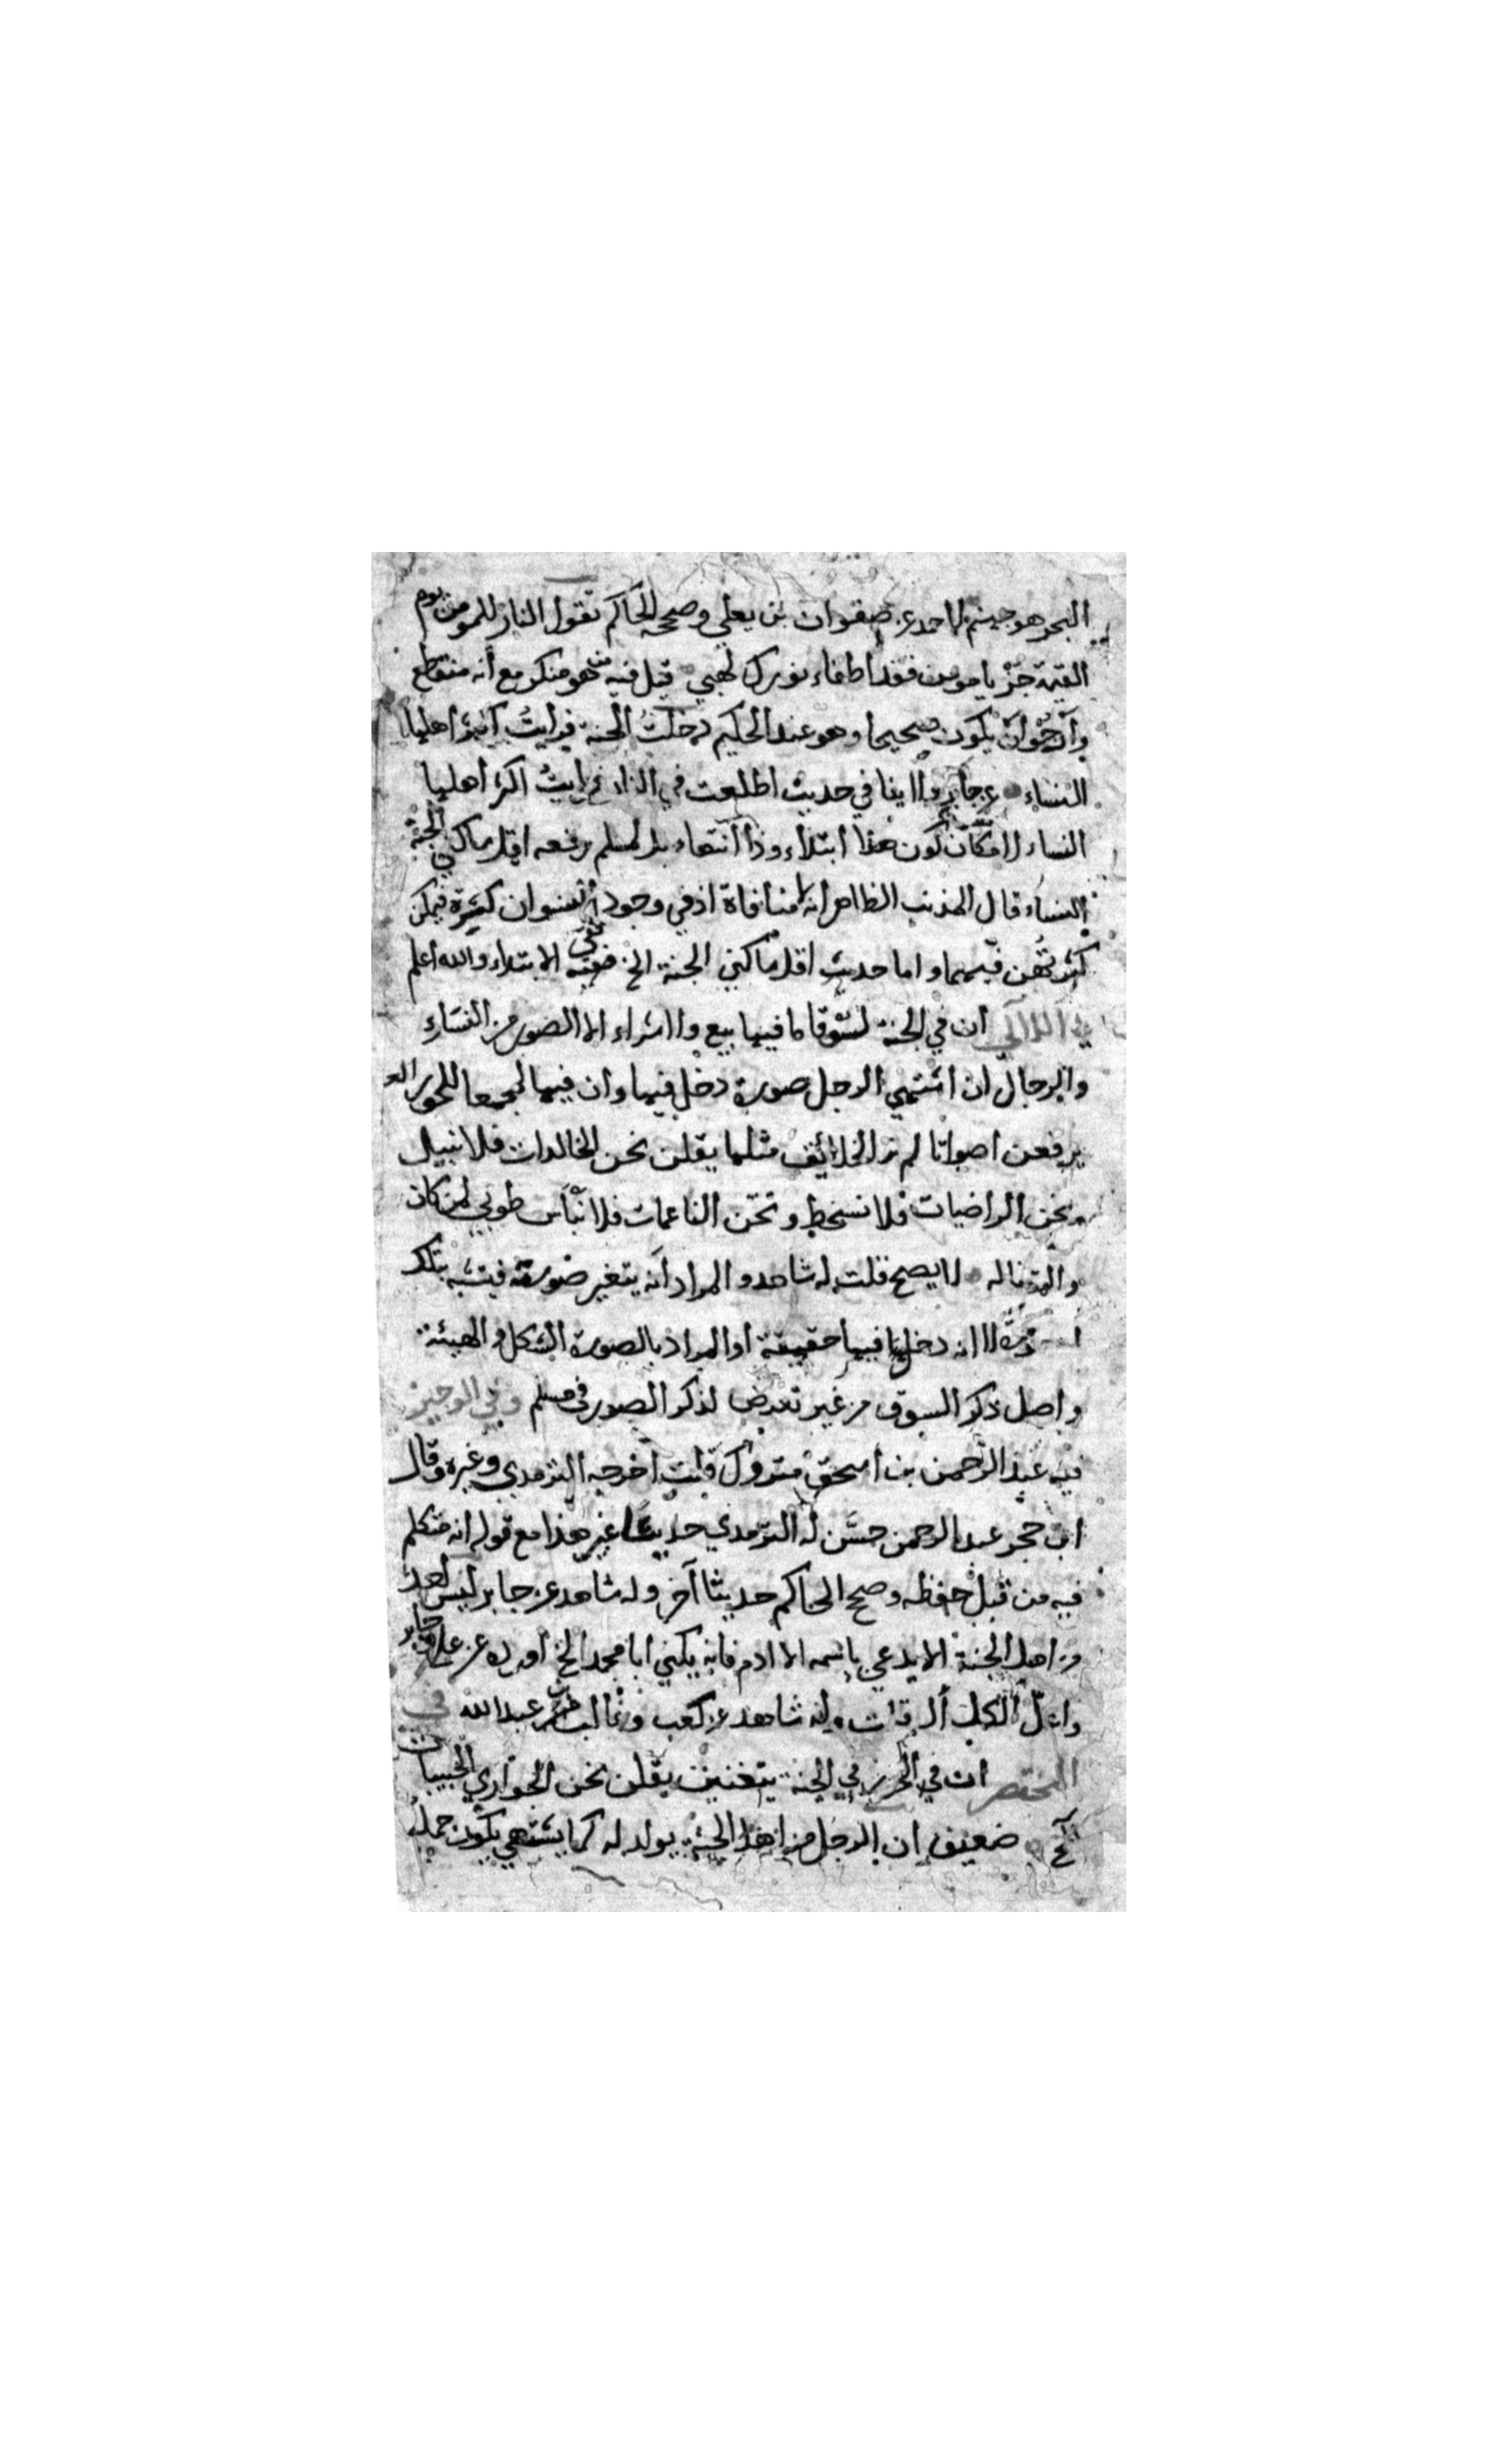 البحر هو جهنم لاحمد عن صفوان بن يعلي وصححه الحاكم تقول النار للمومن يوم
القيمة جز يا مومن فقد اطفاء نورك لهبي قيل فيه من هو منكر مع أنه منقطع
وأرجُوْ أن يكون صحيحا وهو عند الحكيم دخلتُ الجنة فرايتُ أكثر أهليها
النساء عن جابر ولا ينافي حديث اطلعت في النار فرايتُ اكثر أهليها
النساء لامكان كون هذا ابتداء وذا انتهاء بل لمسلم رفعه اقل ساكني الجنة
النساء قال المذنب الظاهر أنه لا منافاة اذ في وجود النسوان كثيرة فيمكن
كثرتهُن فيهما واما حديث اقل ساكني الجنة الخ ففي الابتداء والله اعلم
في اللآلي ان في الجنة لسُوقا ما فيها بيع ولا شراء الا الصور من النسَاء
والرجال ان اشتهي الرجل صورة دخل فيها وان فيها لمجمعا للحور
يرفعن اصواتا لم تر الخلائق مثلها يقلن نحن الخالدات فلا نبيد
ونحن الراضيات فلا نسخط ونحن الناعمات فلا نبْأَس طوبي لمن كان
لنا وكنا له لا يصح قلت له شاهد والمراد أنه يتغير صورته فيتشبه بتلك
الصورة لا انه دخل فيها حقيقة أو المراد بالصورة الشكل والهيئة
واصل ذكر السوق من غير تعرض لذكر الصور في مسلم وفي الوجيز
فيه عبد الرحمن بن اسحق متروك قلت أخرجه الترمدي وغيره وقال
ابن حجر عبد الرحمن حسَّن له الترمدي حديثًا غير هذا مع قوله انه متكلم
فيه من قبل حفظه وصحح الحاكم حديثا آخر وله شاهد عن جابر ليس احد
من اهل الجنة الا يدعي باسمه الا ادم فانه يكني ابا محمد الخ أورده عن علي وجابر
واعل الكل قلت وله شاهد عن كعب وغالب بن عبد الله في
المختصر ان في الجنة يتغنين يقلن نحن الجواري الحبيبات
الخ ضعيف ان الرجل من اهل الجنة يولد له كما يشتهي يكون حمله